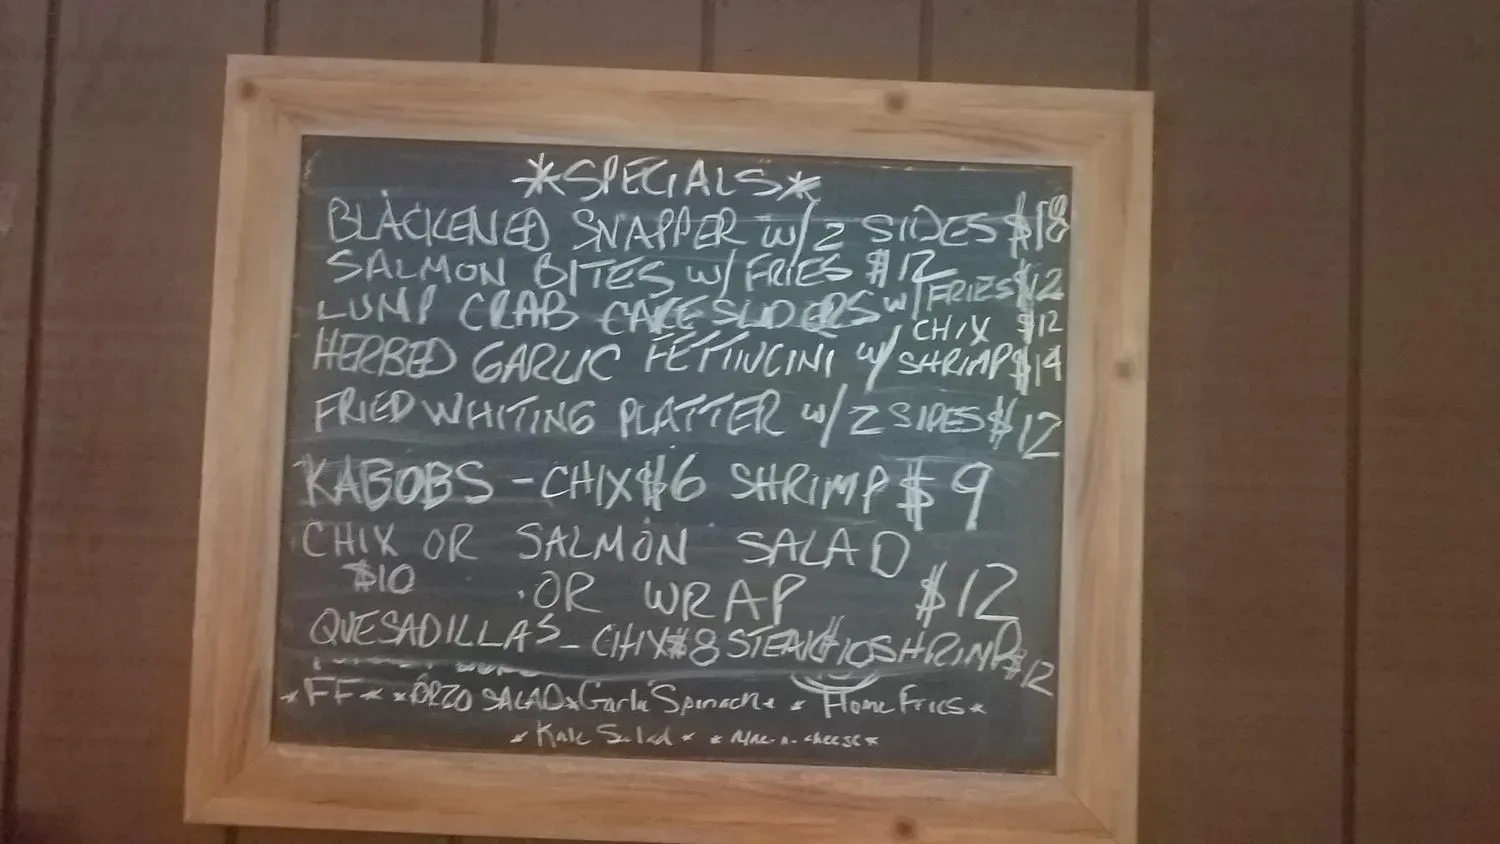 *SPECIALS*
BLACKENED SNAPPER w/2 SIDES $18
SALMON BITES w/ FRIES $12
LUMP CRAB CAKE SLIDERS w/ FRIES $12
CHIX $12
HERBED GARLIC FETTIUCINI w/ SHRIMP $14
FRIED WHITING PLATTER w/ 2 SIDES $12
KABOBS - CHIX $6 SHRIMP $9
CHIX OR SALMON SALAD
$10 OR WRAP $12
QUESADILLAS - CHIX $8 STEAK $10 SHRIMP $12
*FF* *ORZO SALAD* Garlic Spinach* * Home Fries*
* Kale Salad * * Mac-n-cheese*